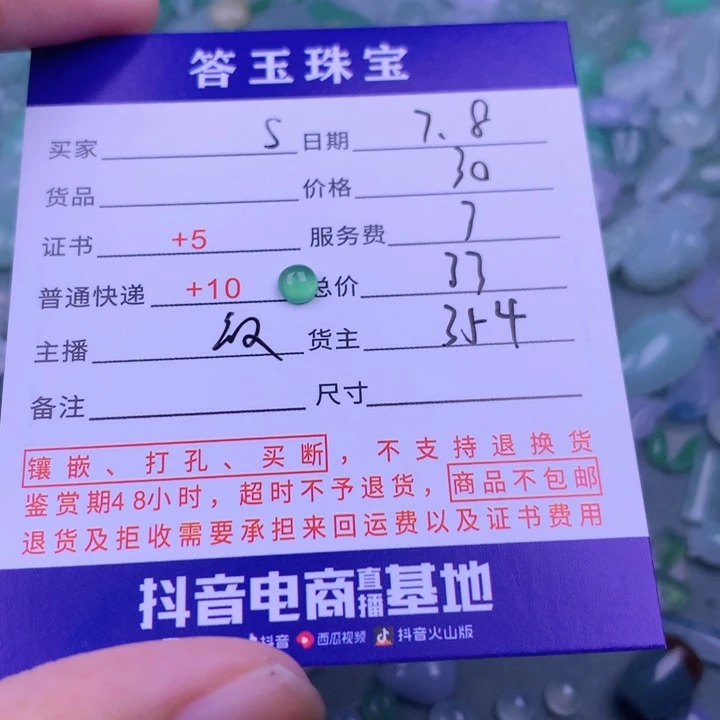 答玉珠宝
买家 S 日期 7.8
货品 价格 30
证书 +5 服务费
普通快递 +10 总价 33
主播 货主 354
备注 尺寸
镶嵌、打孔、买断，不支持退换货
鉴赏期48小时，超时不予退货，商品不包邮
退货及拒收需要承担来回运费以及证书费用
抖音电商直播基地
抖音 西瓜视频 抖音火山版